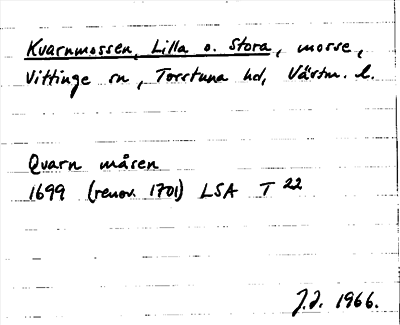 Kvarnmossen, Lilla o. Stora, mosse,
Vittinge sn, Torstuna hd, Västm. l.
Qvarn måsen
1699 (renov. 1701) LSA T 22
J.J. 1966.